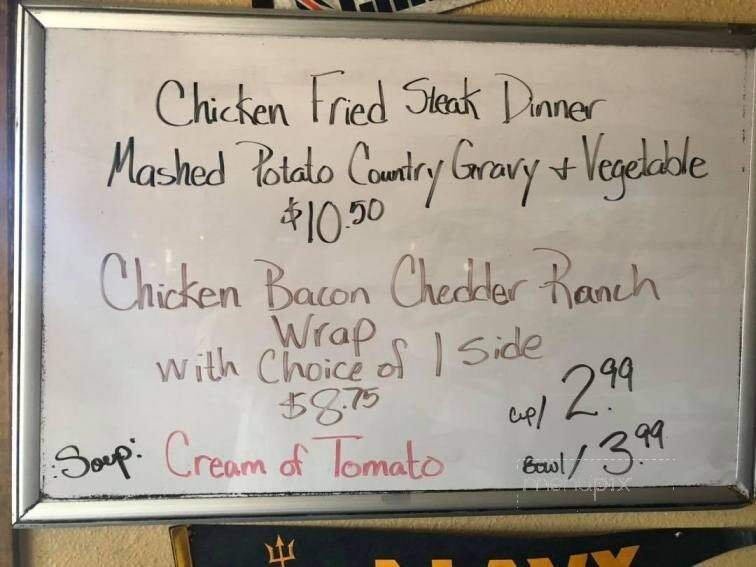 Chicken Fried Steak Dinner
Mashed Potato Country Gravy + Vegetable
$10.50
Chicken Bacon Chedder Ranch
Wrap
with Choice of 1 Side
$8.75
cup/ 2.99
Soup: Cream of Tomato
Bowl/ 3.99
menupix
NAVY